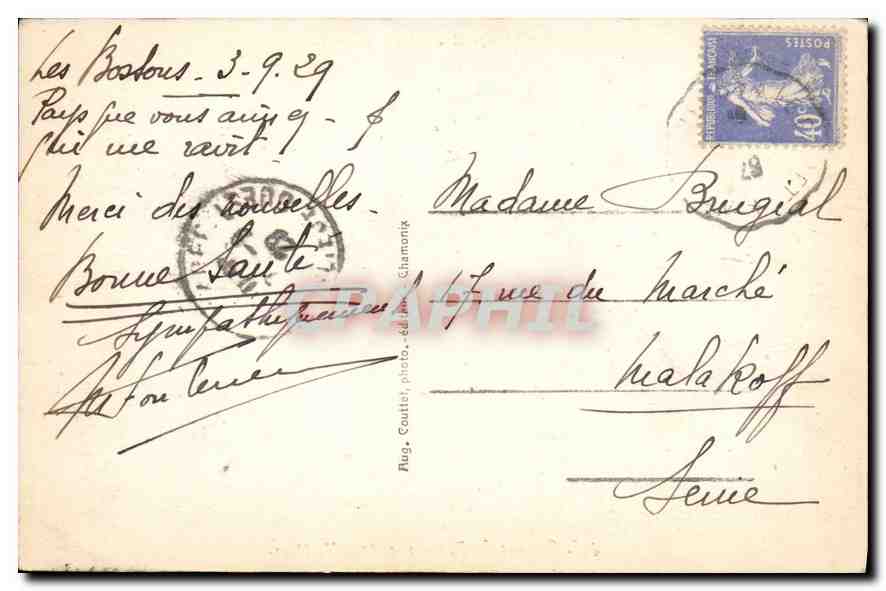 Les Bossons - 3-9.29
Pays que vous aimez -
qui me ravit.
Merci des nouvelles.
Bonne Santé
Sympathiquement
Aug. Couttet, photo.-éditeur, Chamonix
REPUBLIQUE FRANÇAISE
POSTES
40 c
Madame Brugial
17 rue du Marché
Malakoff
Seine
CPAPHIL